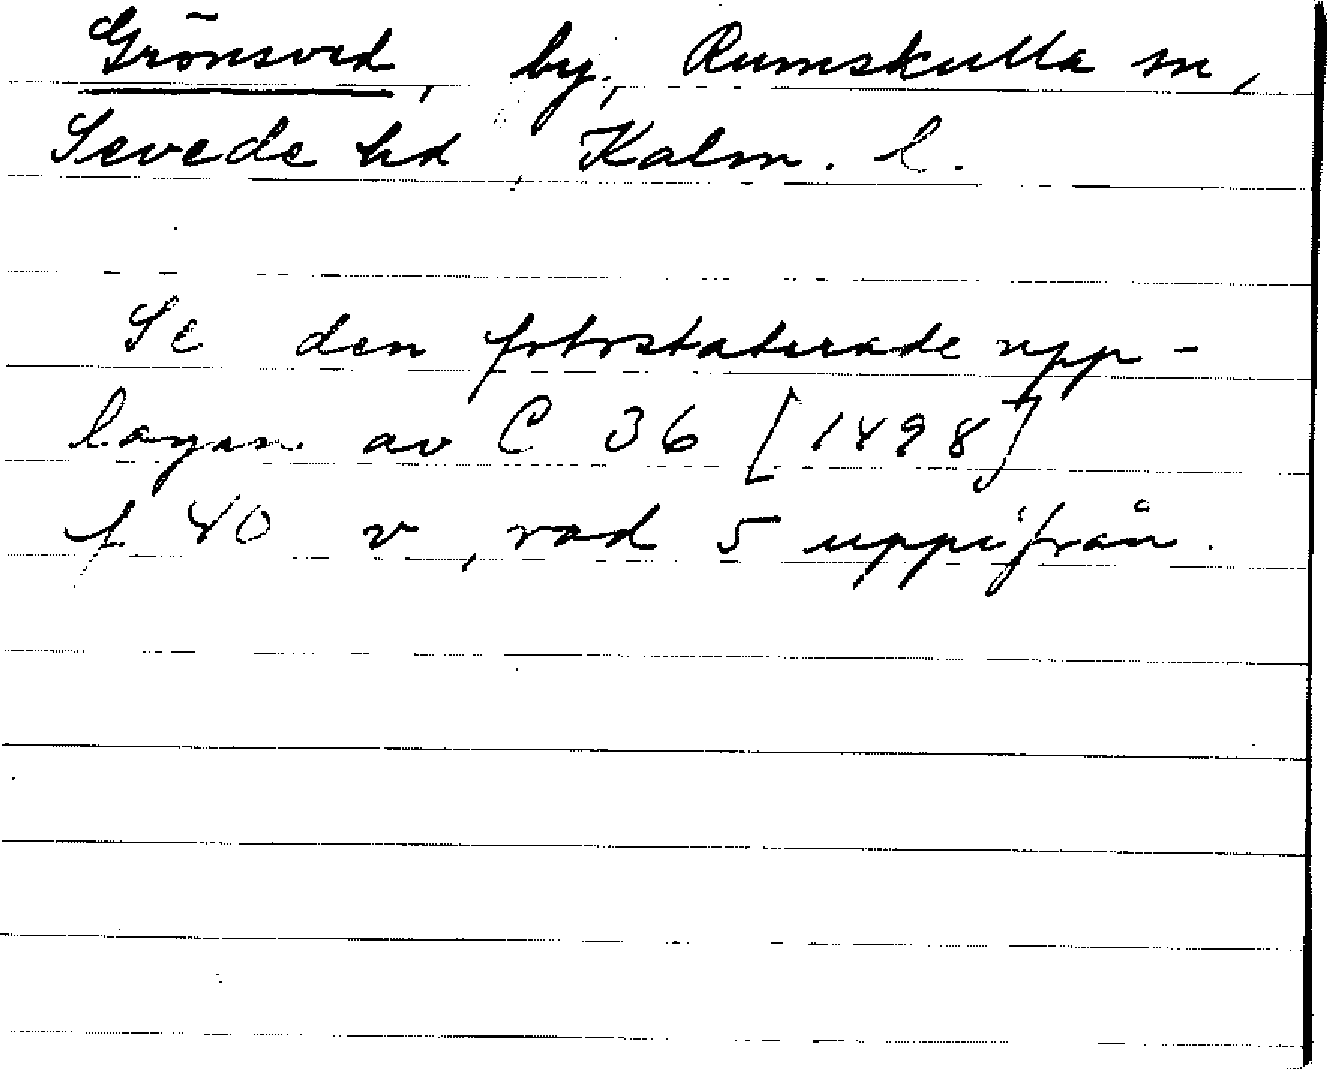 Grönsved, by, Rumskulla sn,
Sevede hd, Kalm. l.
Se den fotostaterade upp-
lagan av C 36 [1498]
f 40 v, rad 5 uppifrån.